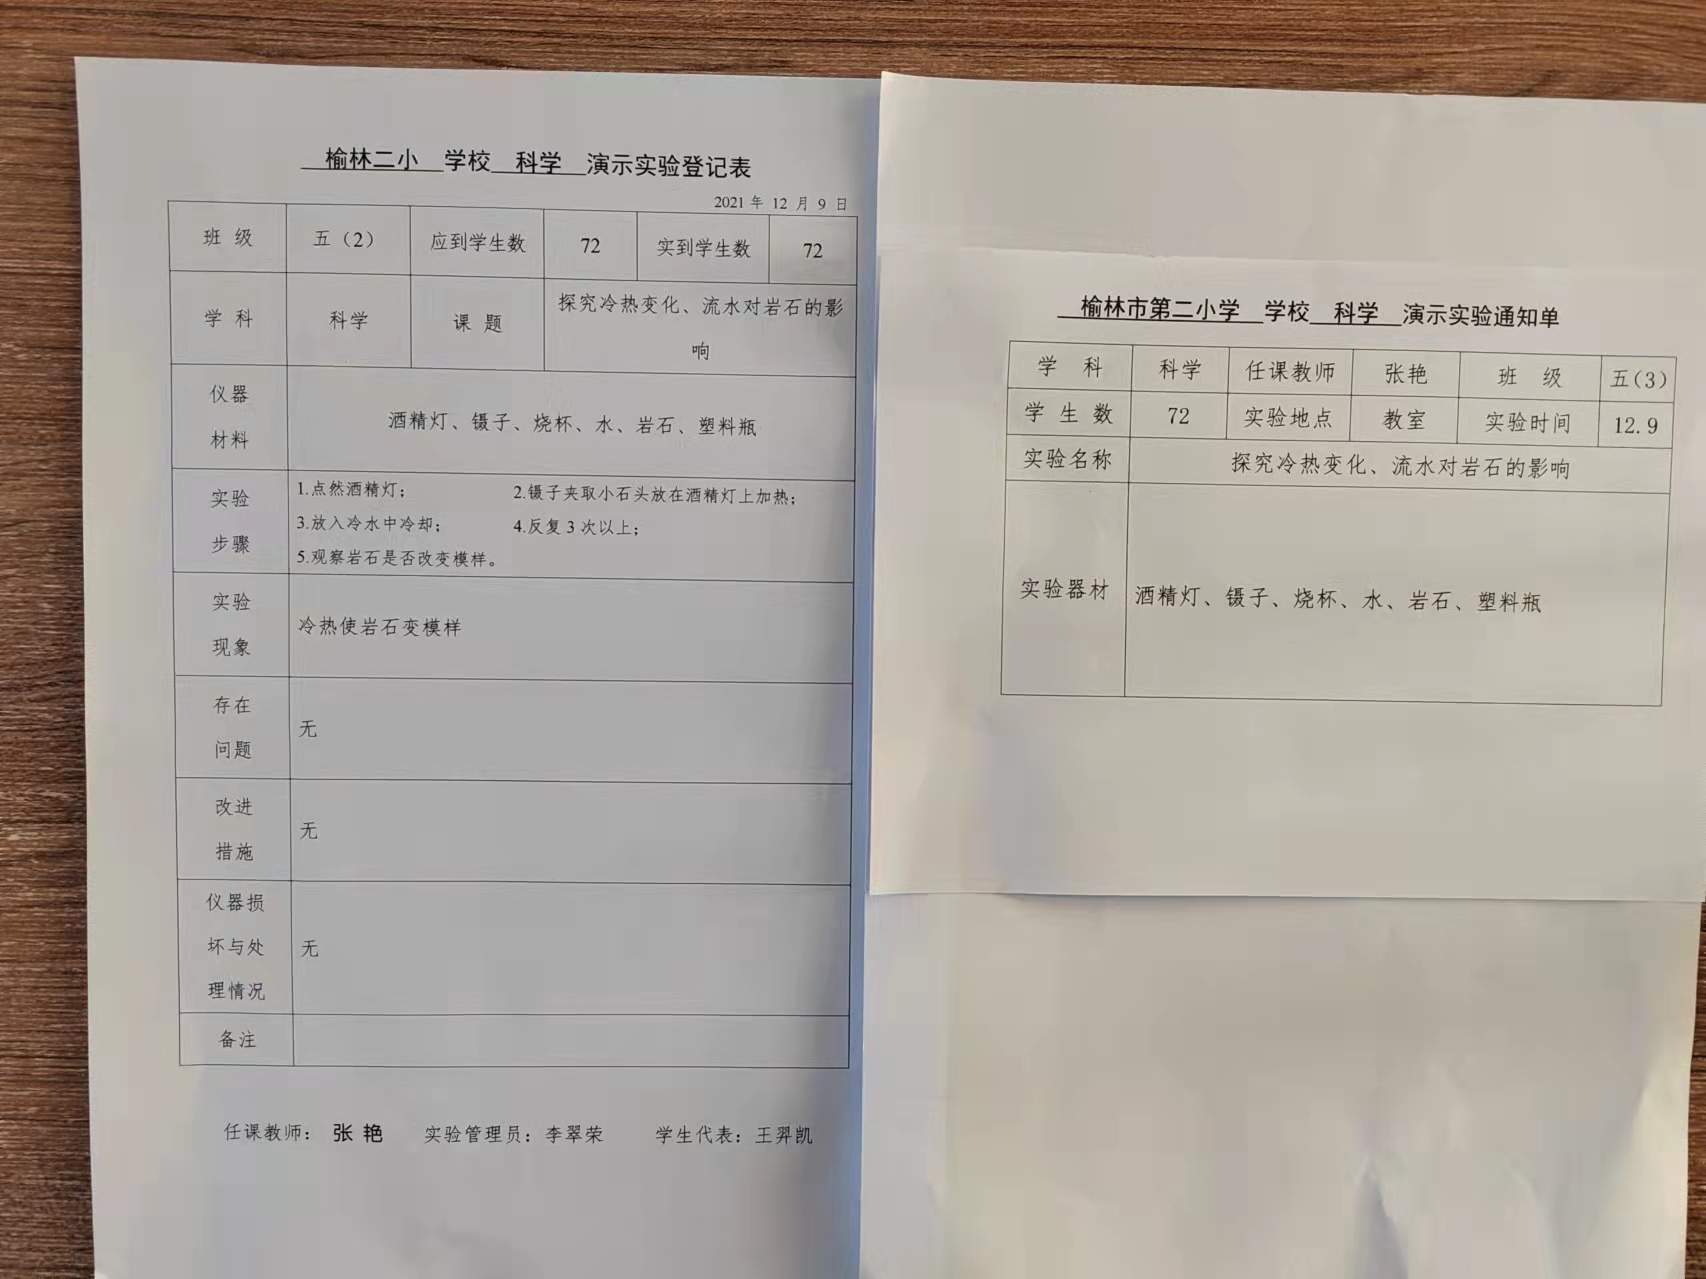 榆林二小 学校 科学 演示实验登记表
2021 年 12 月 9 日
班 级 五（2） 应到学生数 72 实到学生数 72
学 科 科学 课 题 探究冷热变化、流水对岩石的影
响
仪器
材料
酒精灯、镊子、烧杯、水、岩石、塑料瓶
实验
步骤
1.点然酒精灯； 2.镊子夹取小石头放在酒精灯上加热；
3.放入冷水中冷却； 4.反复 3 次以上；
5.观察岩石是否改变模样。
实验
现象
冷热使岩石变模样
存在
问题
无
改进
措施
无
仪器损
坏与处
理情况
无
备注
任课教师： 张 艳 实验管理员：李翠荣 学生代表：王羿凯
榆林市第二小学 学校 科学 演示实验通知单
学 科 科学 任课教师 张艳 班 级 五（3）
学 生 数 72 实验地点 教室 实验时间 12.9
实验名称 探究冷热变化、流水对岩石的影响
实验器材 酒精灯、镊子、烧杯、水、岩石、塑料瓶